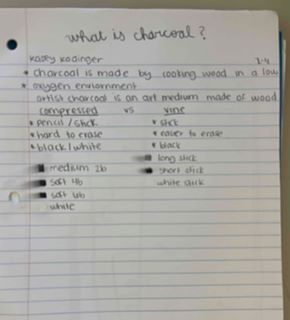 what is charcoal?
Kasey Kodinger 2-4
* charcoal is made by cooking wood in a low
* oxygen enviornment
artist charcoal is an art medium made of wood
compressed vs vine
* pencil / stick * stick
* hard to erase * easier to erase
* black / white * black
medium 2b long stick
soft 4b short stick
soft 6b white stick
white